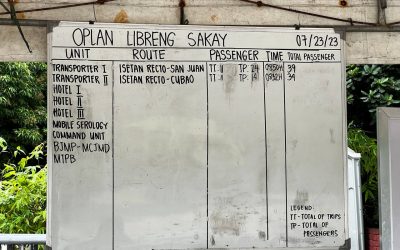 OPLAN LIBRENG SAKAY 07/23/23
UNIT ROUTE PASSENGER TIME TOTAL PASSENGER
TRANSPORTER I ISETAN RECTO-SAN JUAN TT: 11 TP: 24 0850H 39
TRANSPORTER II ISETAN RECTO-CUBAO TT: 11 TP: 39
HOTEL I
HOTEL II
HOTEL III
MOBILE SEROLOGY
COMMAND UNIT
BJMP-MCJMD
MTPB
LEGEND:
TT-TOTAL OF TRIPS
TP-TOTAL OF
PASSENGERS